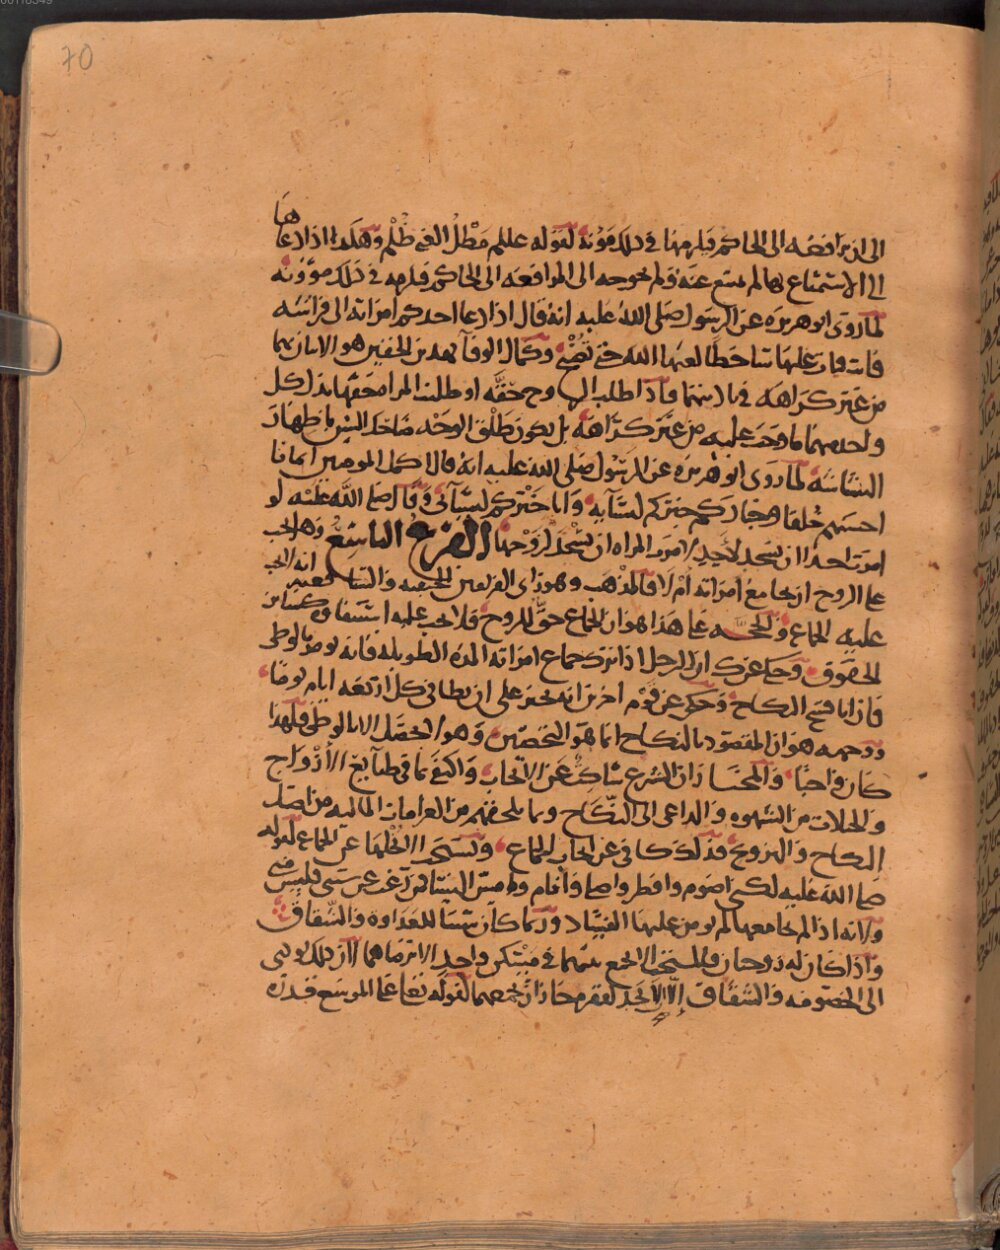 70
الى ان يرافعه الى الحاكم فيلزمها في ذلك مؤنة لقوله عللم مطل الغني ظلم وهكذا اذا دعاها
الى الاستمتاع بها لم تمتنع عنه ولم تحوجه الى المرافعه الى الحاكم فيلزمه في ذلك مؤونه
لما روى ابو هريره عن الرسول صلى الله عليه انه قال اذا دعا احدكم امراته الى فراشه
فابت فبات عليها ساخطا لعنها الله حتى تصبح وكمال الوفا بهدين الحقين هو الاتيان بهما
من غير كراهه فيما بينهما فاذا طلب الزوج حقه او طلبت المراه حقها بذل كل
واحد منهما ما وجب عليه من غير كراهه بل يكون طلق الوجه ضاحك السن باظهار
البشاشه لما روى ابو هريره عن الرسول صلى الله عليه انه قال اكمل المومنين ايمانا
احسنهم خلقا وخياركم خيركم لنسايه وانا خيركم لنسائي وقال صلى الله عليه لو
امرت احدا ان يسجد لاحد لامرت المراه ان تسجد لزوجها الفرع التاسع وهل يجب
على الزوج ان يجامع امراته ام لا فالمذهب وهو راي الفريقين الحنفيه والشافعيه انه لا يجب
عليه الجماع والحجه على هذا هو ان الجماع حق للزوج فلا يجب عليه استيفاوه كسائر
الحقوق وحكي عن ان الرجل اذا ترك جماع امراته المده الطويله فانه يومر بالوطى
فان ابا فسخ النكاح وحكي عن قوم اخرين انه يجب على ان يطا في كل اربعه ايام يوما
ووجهه هو ان المقصود بالنكاح انما هو التحصين وهو لا يحصل الا بالوطى فلهذا
كان واجبا والمختار ان الشرع ساكت عن الايجاب واكتفى بما في طبائع الازواج
والحلات من الشهوه والداعي الى النكاح وبما يلحقهم من الغرامات الماليه من اصل
النكاح والتزوج فذلك كافي عن ايجاب الجماع ويستحب الا يخليها عن الجماع لقوله
صلى الله عليه لكني اصوم وافطر واصلي وانام وامس النسا فمن رغب عن سنتي فليس مني
ولانه اذا لم يجامعها لم يومن عليها الفساد وربما كان سببا للعداوه والشقاق
واذا كان له زوجتان فالمستحب الا يجمع بينهما في مسكن واحد الا برضاهما لان ذلك يودي
الى الخصومه والشقاق الا لفقر جاز ان يجمعهما لقوله تعالى على الموسع قدره